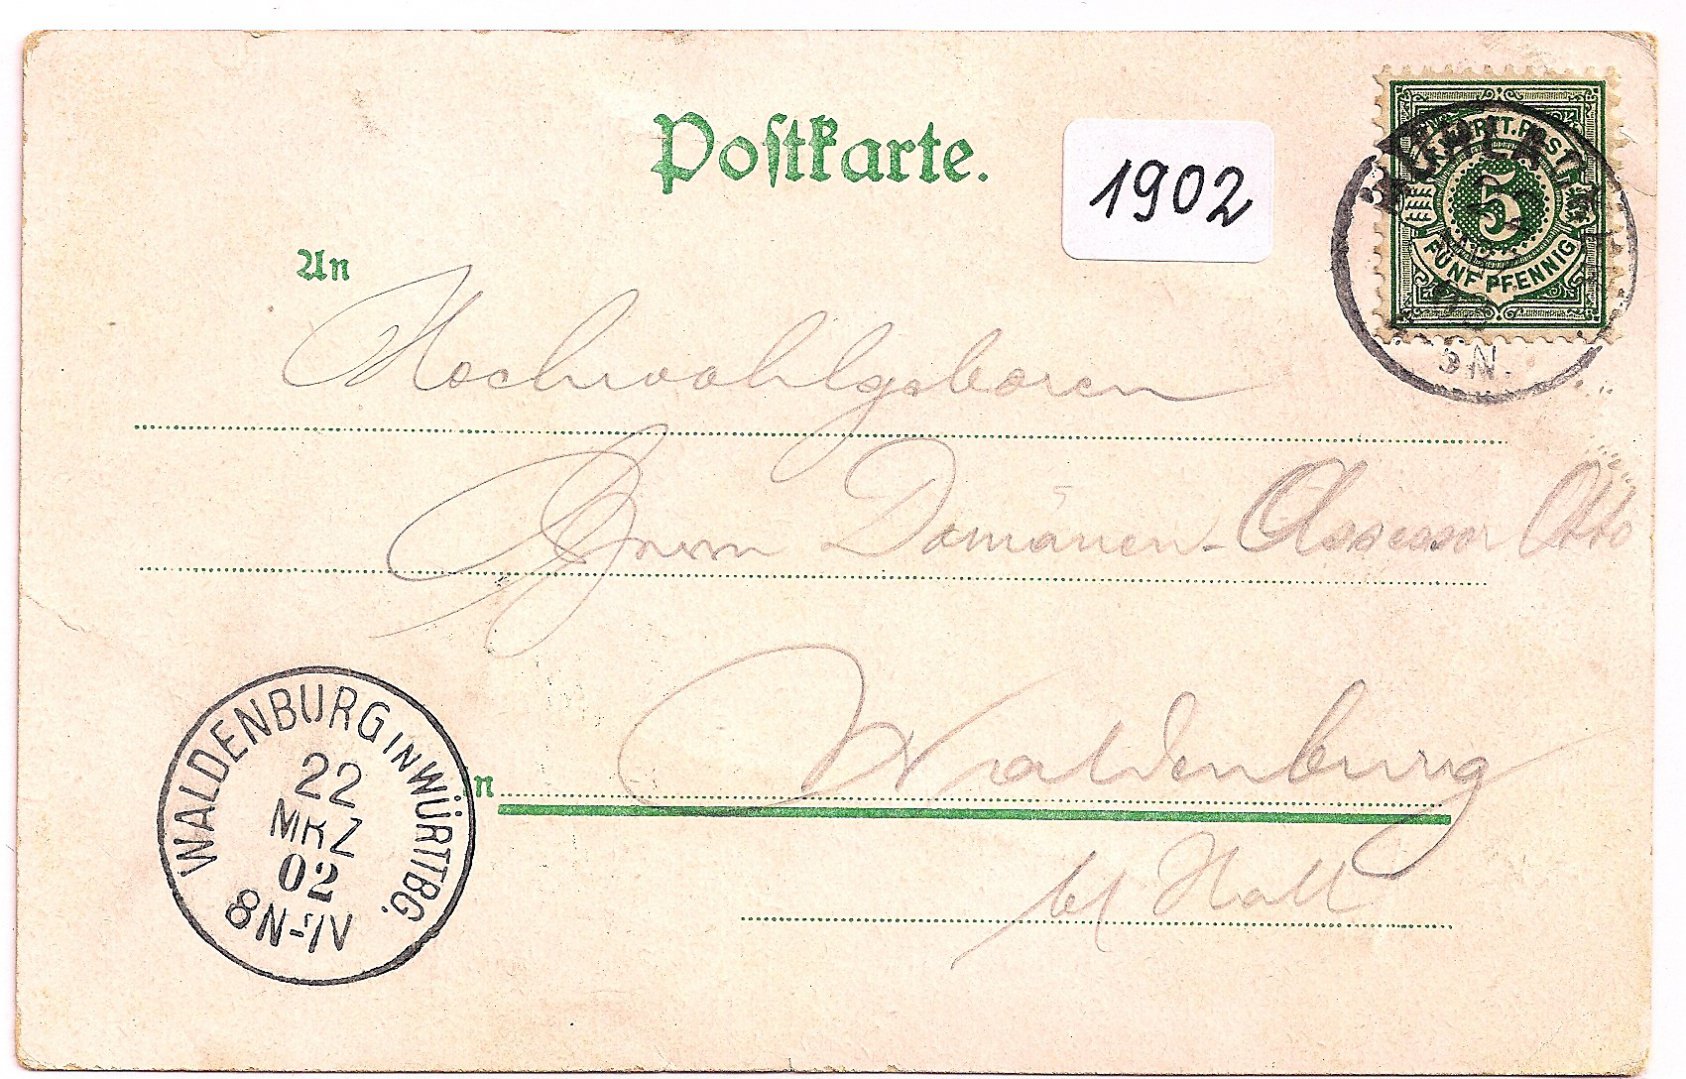 Postkarte.
1902
K. WÜRTT. POST
5
FÜNF PFENNIG
5N.
An
Hochwohlgeboren
Herrn Domänen-Assessor Otto
n Waldenburg
b/ Hall
WALDENBURG IN WÜRTTBG.
22
MRZ
02
8N-